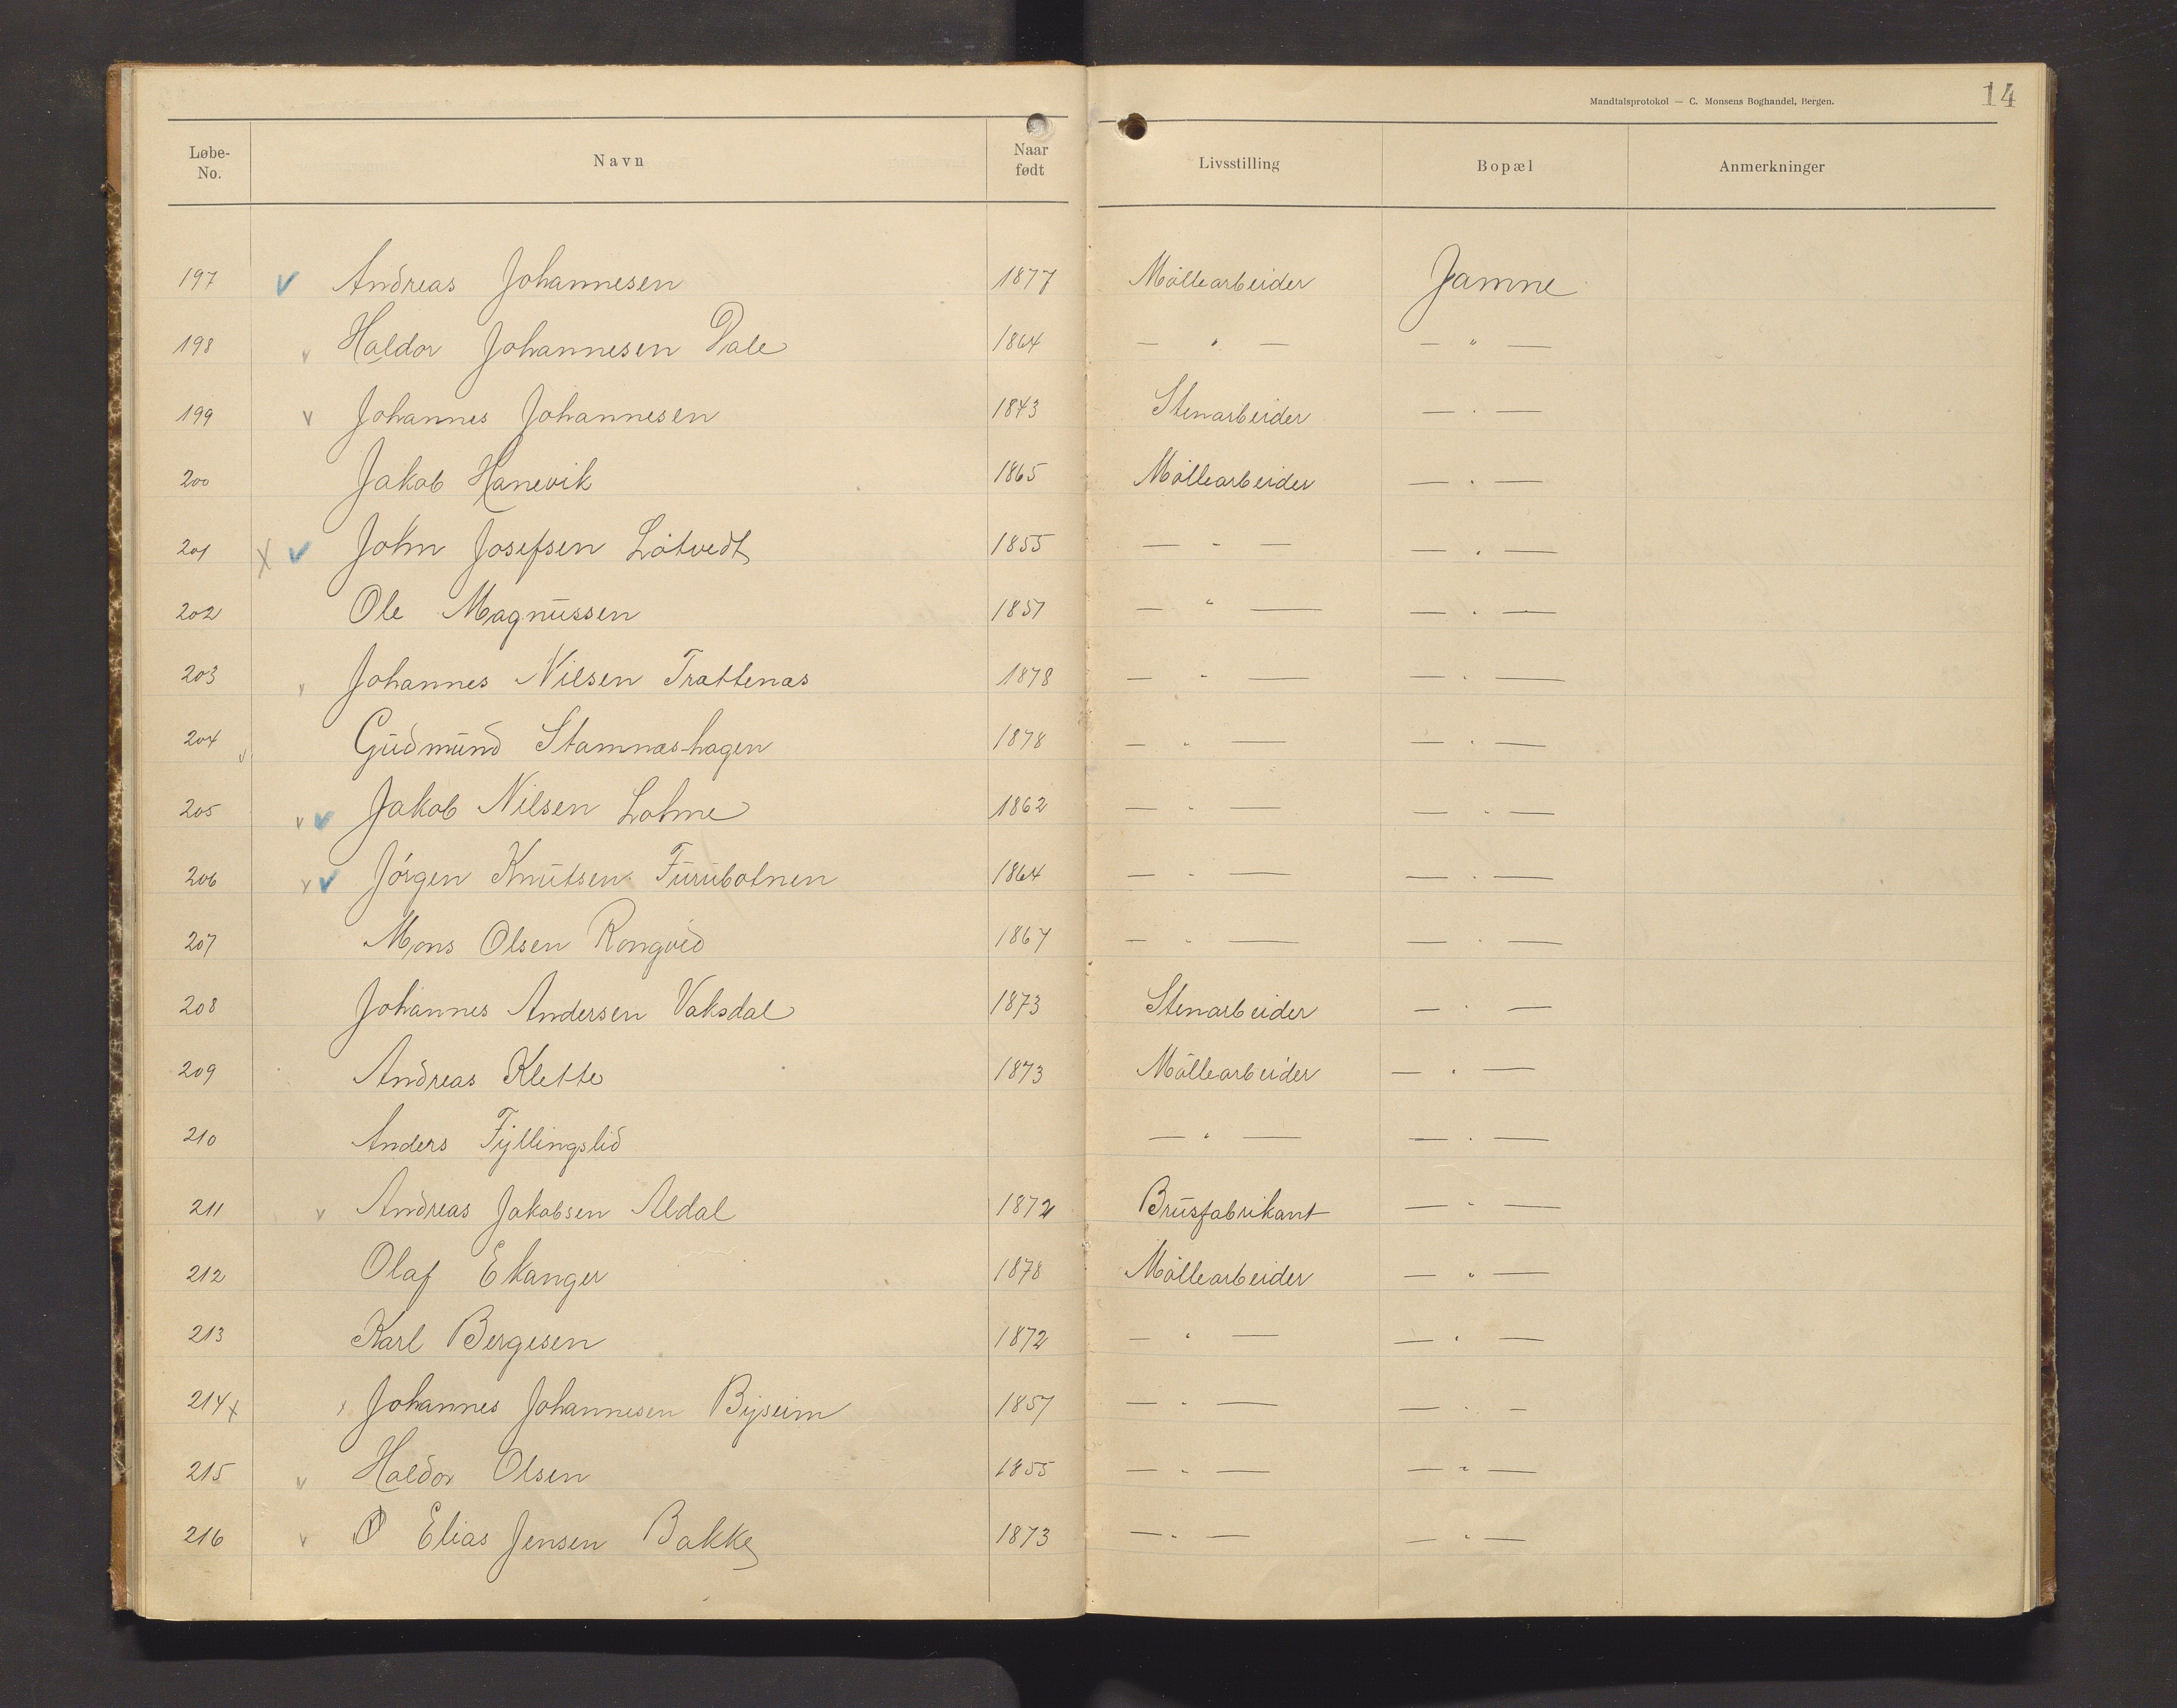 Mandtalsprotokol — C. Monsens Boghandel, Bergen.
14
Løbe-No. Navn Naar født Livsstilling Bopæl Anmerkninger
197 v Andreas Johannesen 1877 Möllearbeider Jamne
198 v Haldor Johannesen Dale 1864 — " — — " —
199 v Johannes Johannesen 1843 Stenarbeider — " —
200 Jakob Hanevik 1865 Möllearbeider — " —
201 x v John Josefsen Lötvedt 1855 — " — — " —
202 Ole Magnussen 1857 — " — — " —
203 v Johannes Nilsen Trattenas 1878 — " — — " —
204 v Gudmund Stamnashagen 1878 — " — — " —
205 v v Jakob Nilsen Lohne 1862 — " — — " —
206 v v Jörgen Knutsen Furubotnen 1864 — " — — " —
207 Mons Olsen Rongved 1867 — " — — " —
208 Johannes Andersen Vaksdal 1873 Stenarbeider — " —
209 Andreas Klette 1873 Möllearbeider — " —
210 Anders Fyllingslid — " — — " —
211 v Andreas Jakobsen Aldal 1872 Brusfabrikant — " —
212 Olaf Ekanger 1878 Möllearbeider — " —
213 Karl Bergesen 1872 — " — — " —
214 x v Johannes Johannesen Byseim 1857 — " — — " —
215 v Haldor Olsen 1855 — " — — " —
216 v O Elias Jensen Bakke 1873 — " — — " —